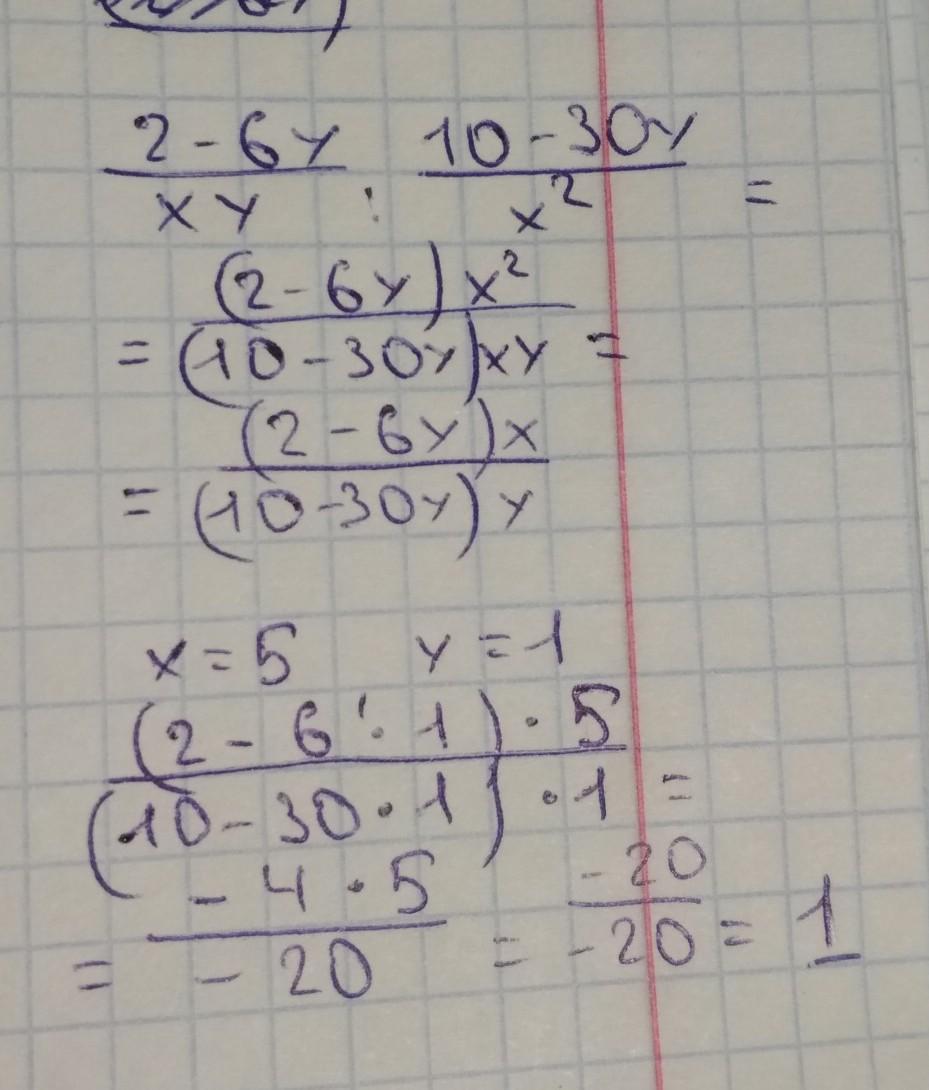 2 - 6y / xy : 10 - 30y / x² =
= (2 - 6y) x² / (10 - 30y) xy =
= (2 - 6y) x / (10 - 30y) y
x = 5 y = 1
(2 - 6 · 1) · 5 / (10 - 30 · 1) · 1 =
= - 4 · 5 / - 20 = - 20 / - 20 = 1